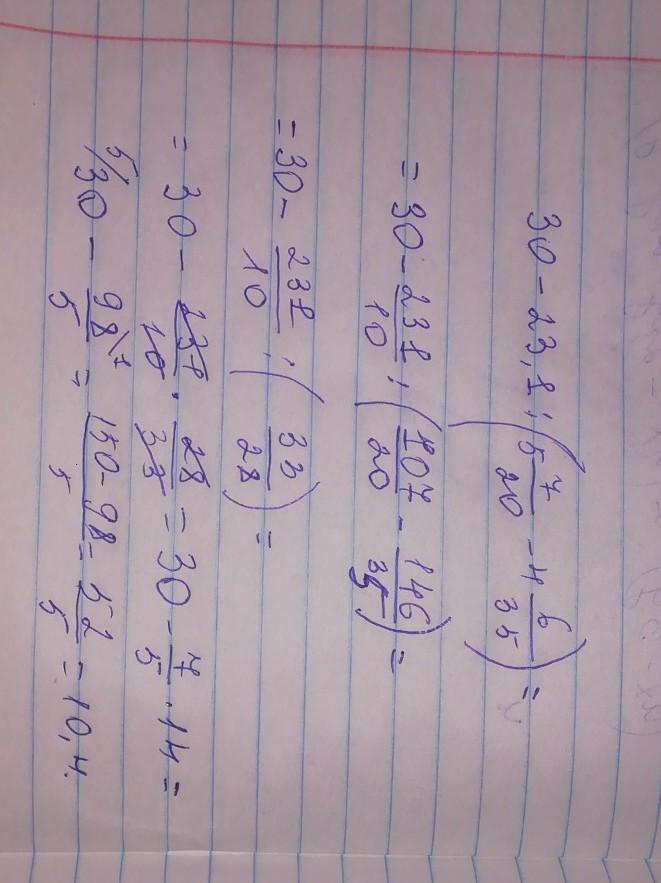 30 - 23,8 : (5 7/20 - 4 6/35) =
= 30 - 238/10 : (107/20 - 146/35) =
= 30 - 238/10 : (33/28) =
= 30 - 238/10 · 28/33 = 30 - 7/5 · 14 =
5/30 - 98\7/5 = 150-98/5 = 52/5 = 10,4.